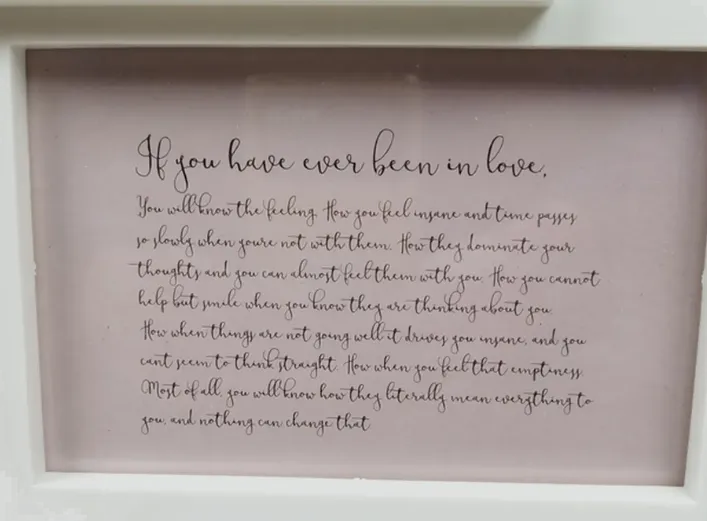 If you have ever been in love,
You will know the feeling. How you feel insane and time passes
so slowly when youre not with them. How they dominate your
thoughts and you can almost feel them with you. How you cannot
help but smile when you know they are thinking about you.
How when things are not going well it drives you insane, and you
cant seem to think straight. How when you feel that emptiness.
Most of all, you will know how they literally mean everything to
you, and nothing can change that